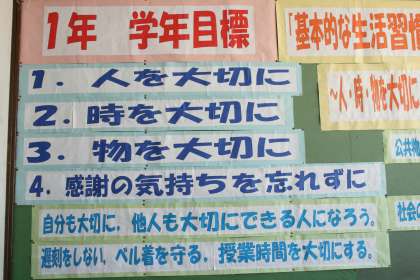 1年 学年目標
1. 人を大切に
2. 時を大切に
3. 物を大切に
4. 感謝の気持ちを忘れずに
自分も大切に，他人も大切にできる人になろう。
遅刻をしない，ベル着を守る，授業時間を大切にする。
「基本的な生活習慣
～人・時・物を大切に
公共物
社会の